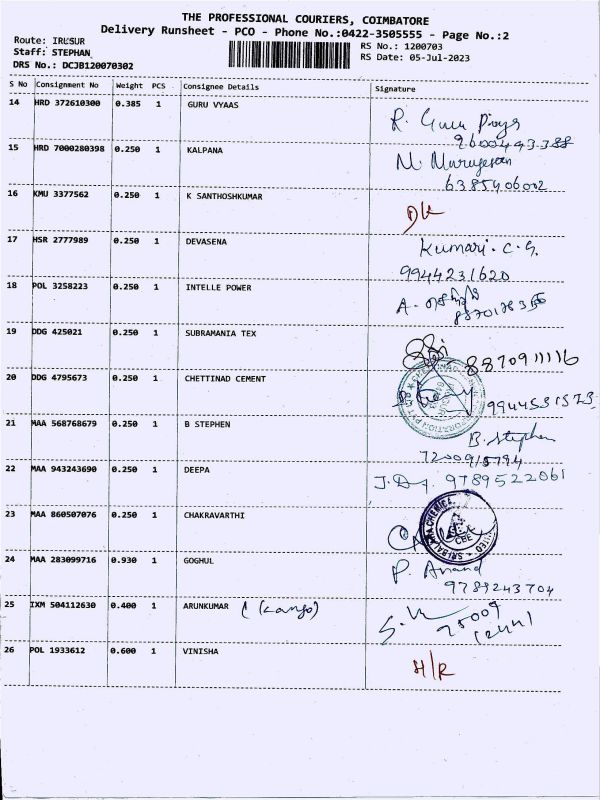 THE PROFESSIONAL COURIERS, COIMBATORE
Delivery Runsheet - PCO - Phone No.:0422-3505555 - Page No.:2
Route: IRUSUR
Staff: STEPHAN
DRS No.: DCJB120070302
RS No.: 1200703
RS Date: 05-Jul-2023
S No Consignment No Weight PCS Consignee Details Signature
14 HRD 372610300 0.385 1 GURU VYAAS
R. Guru Priya
9600493388
15 HRD 7000280398 0.250 1 KALPANA
M. Murugesan
6385406002
16 KMU 3377562 0.250 1 K SANTHOSHKUMAR
17 HSR 2777989 0.250 1 DEVASENA
Kumari. C. G.
9944231620
18 POL 3258223 0.250 1 INTELLE POWER
A.
19 DDG 425021 0.250 1 SUBRAMANIA TEX
8870911116
20 DDG 4795673 0.250 1 CHETTINAD CEMENT
9944531523
21 MAA 568768679 0.250 1 B STEPHEN
B. Stephen
7200915794
22 MAA 943243690 0.250 1 DEEPA
9789522061
23 MAA 860507076 0.250 1 CHAKRAVARTHI
CBE
24 MAA 283099716 0.930 1 GOGHUL
P. Anand
9789243704
25 IXM 504112630 0.400 1 ARUNKUMAR
26 POL 1933612 0.600 1 VINISHA
H/R